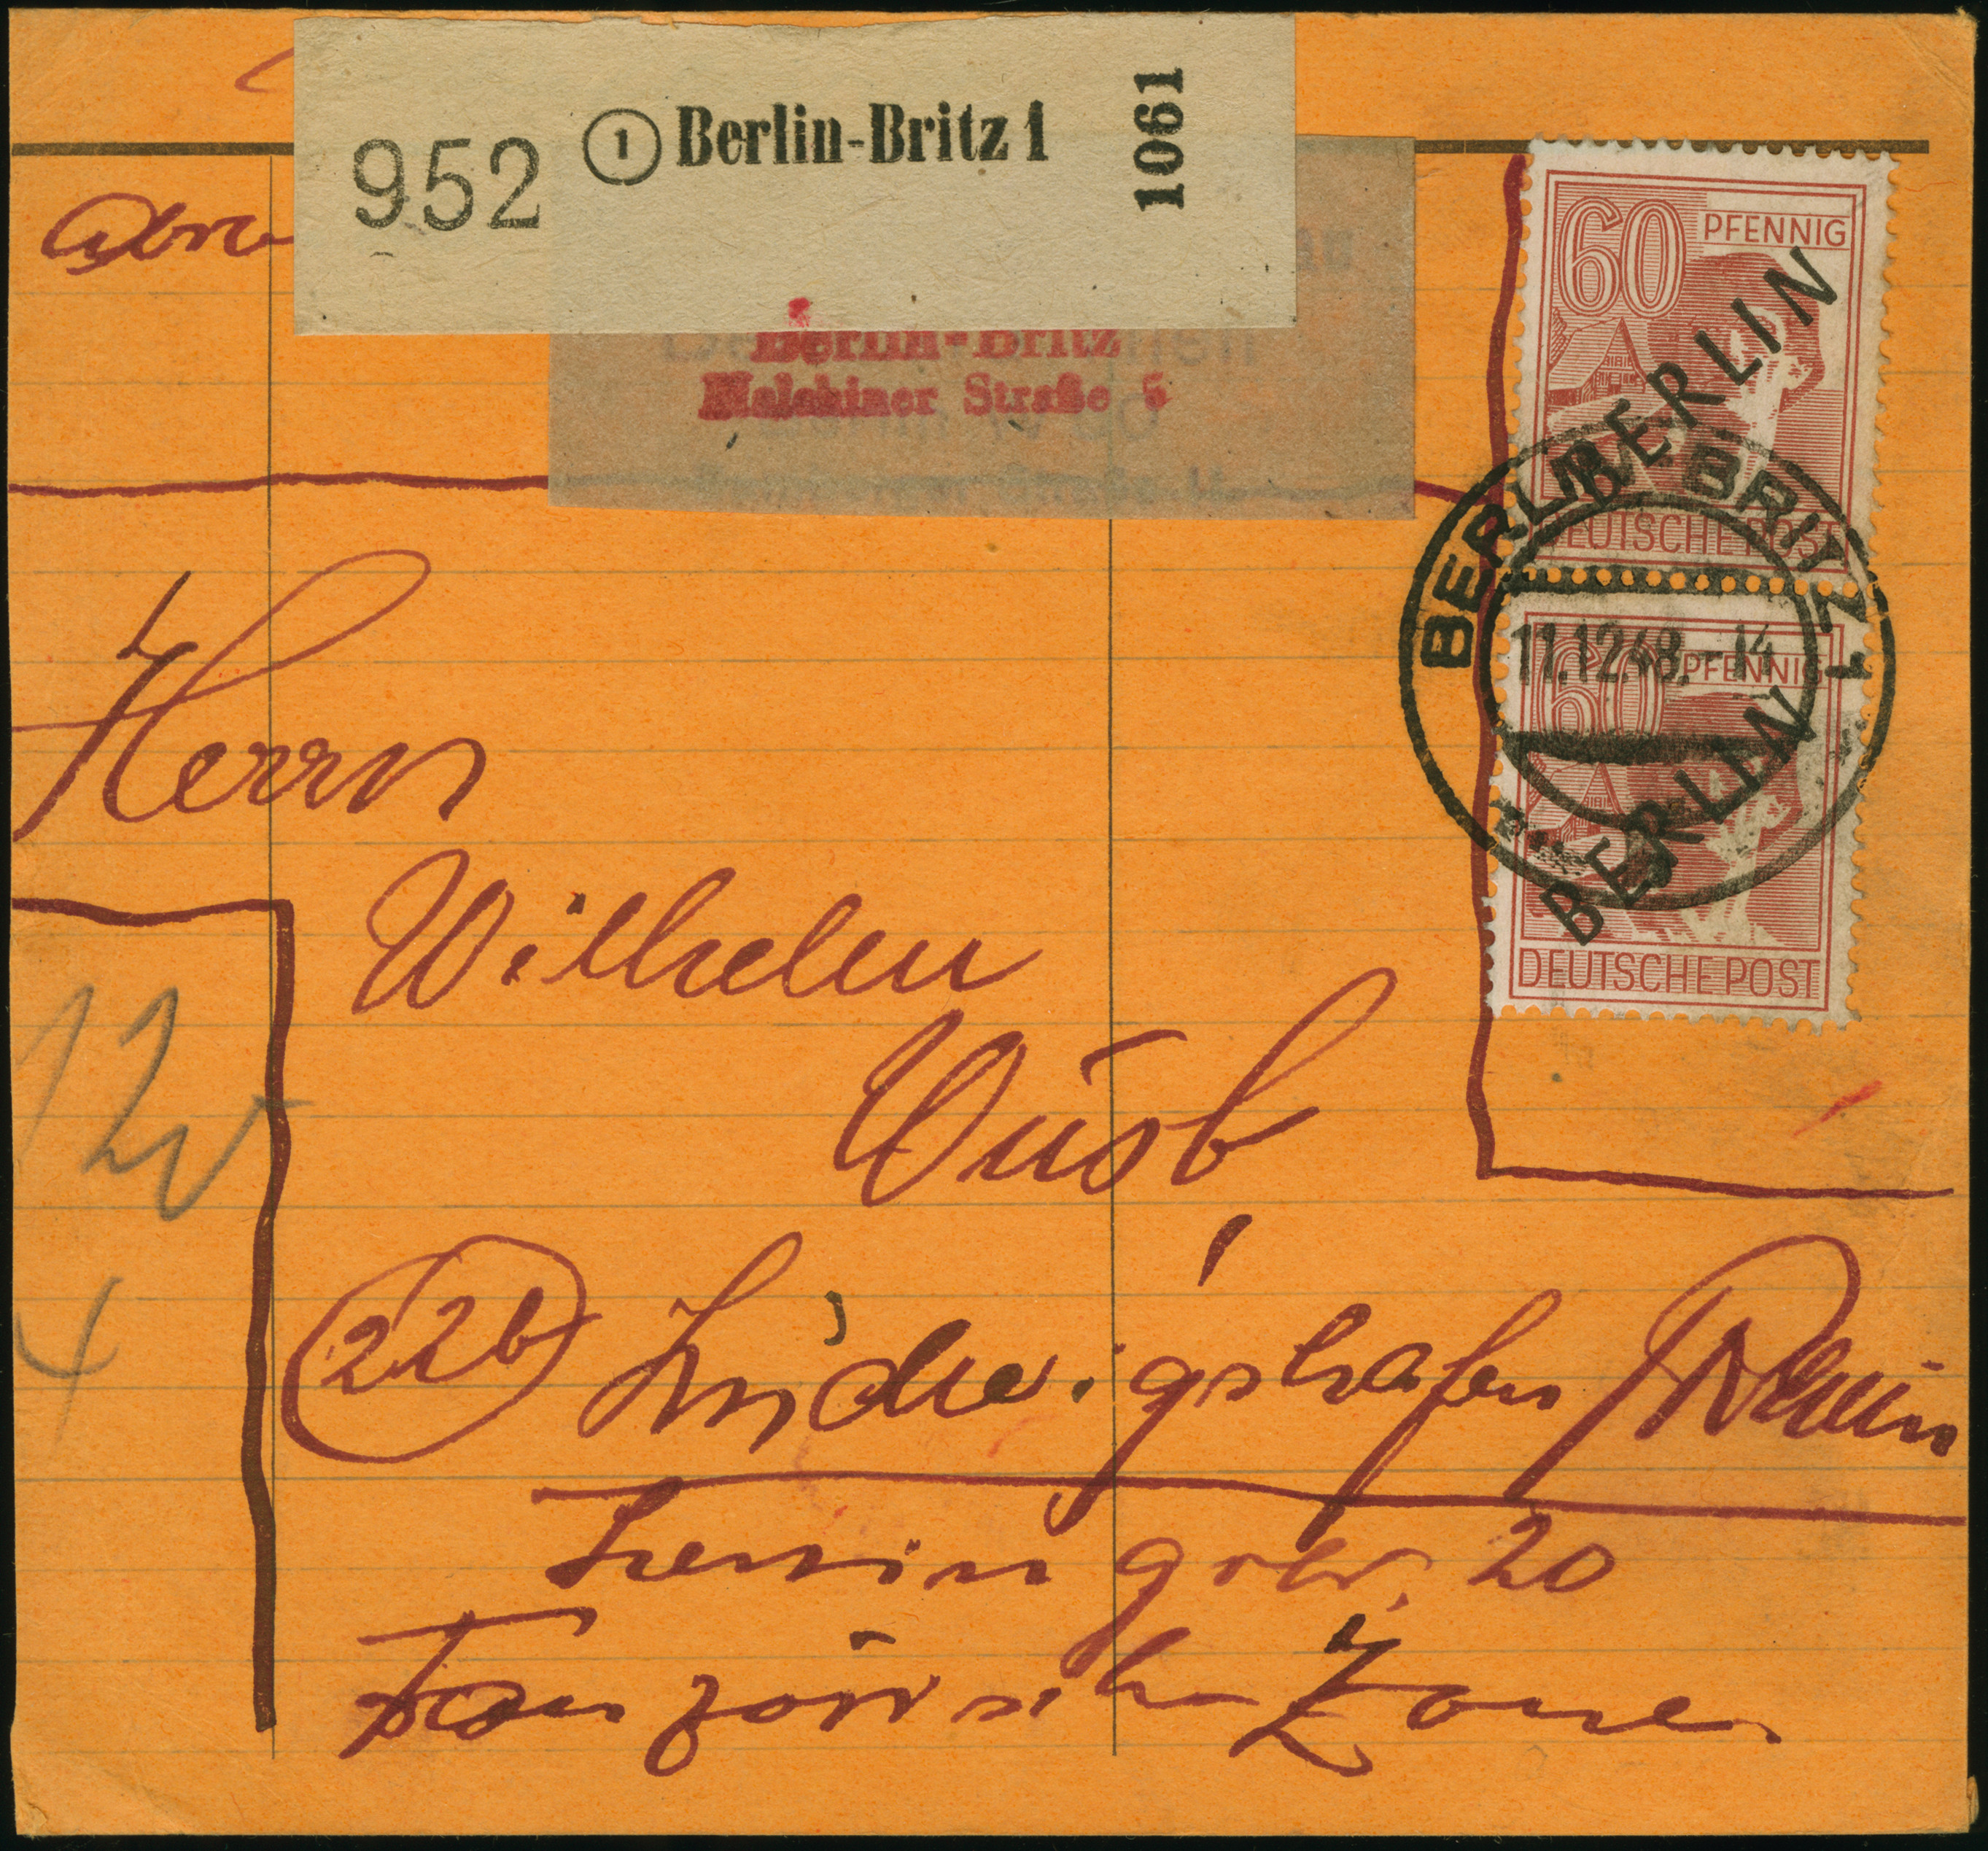 952 1 Berlin-Britz 1 1061
Berlin-Britz
Malchiner Straße 5
60 PFENNIG
BERLIN
DEUTSCHE POST
BERLIN-BRITZ 1
11.12.48.-14
60 PFENNIG
BERLIN
DEUTSCHE POST
Herrn
Wilhelm
(22b) Ludwigshafen / Rhein
20
Französische Zone